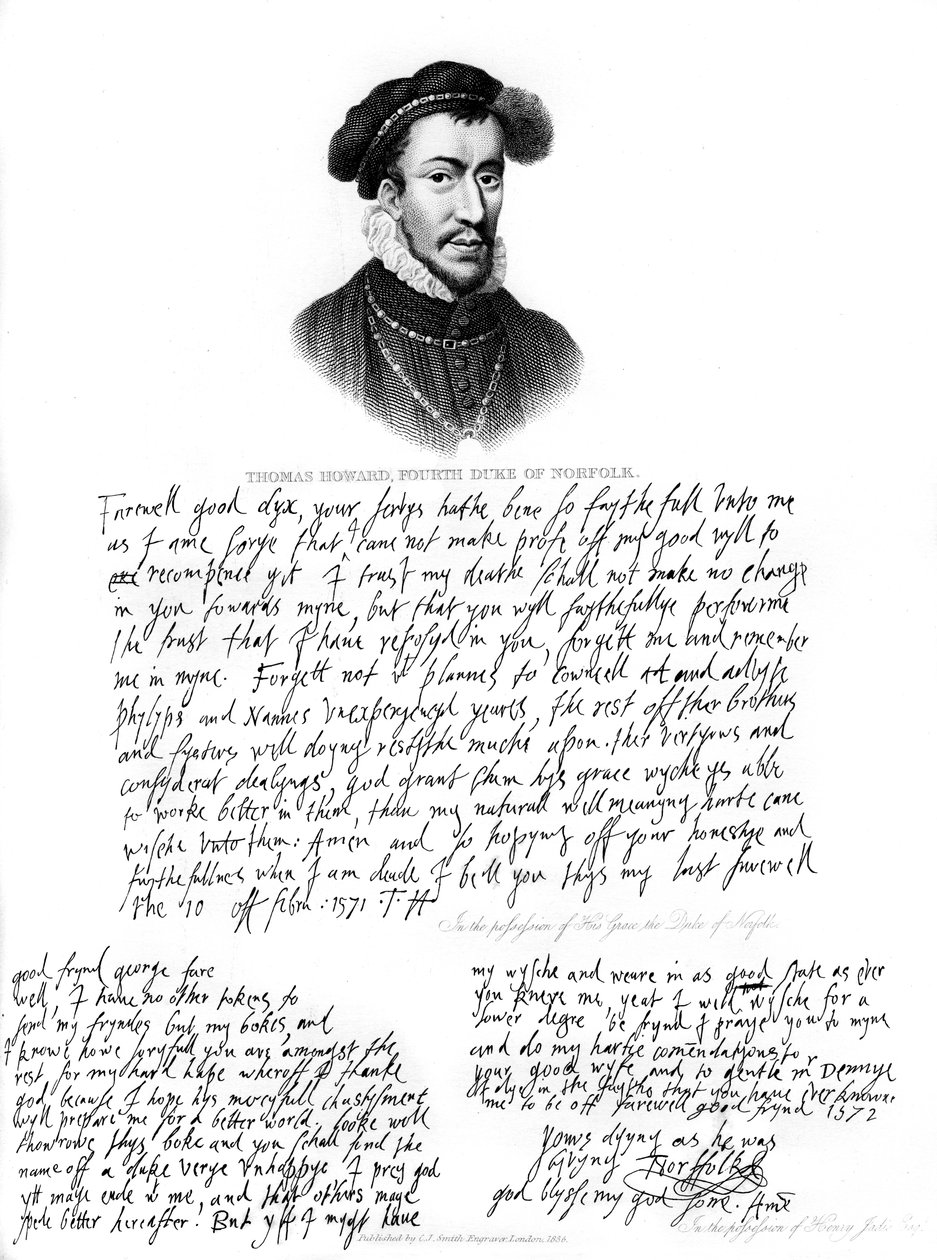 THOMAS HOWARD, FOURTH DUKE OF NORFOLK.
Farewell good dyx, your servys hathe bene so faythefull unto me
as I ame sorye that I cane not make profe off my good wyll to
recompence yt I trust my deathe schall not make no change
in you towards myne, but that you wyll faythefullye perforeme
the trust that I have reposyd in you, forgett me and remember
me in myne. Forgett not wt plannes to cowncell and advyse
phylyps and Nannes unexperyencyd yeares, the rest off ther brothers
and systers well doyng restythe muche apon ther vertyows and
consyderat dealyngs, god grant them hys grace wyche ys able
to worke better in them, than my natural well meanyng harte cane
wysche unto them: Amen and so hopyng off your honestye and
faythefullnes when I am deade I bell you thys my last farewell
the 10 off febru : 1571 T H
In the possession of His Grace the Duke of Norfolk.
good frynd george fare
well, I have no other tokens to
send my fryndes but my bokes, and
I knowe howe soryfull you are amongst the
rest for my hard happe wheroff I thanke
god because I hope hys mercyfull chastysment
wyll prepare me for a better world. looke well
thowrowe thys boke and you schall find the
name off a duke verye unhappye I prey god
ytt maye ende wt me, and that others maye
spede better hereafter. But yff I myght have
my wysche and weare in as good state as ever
you knewe me, yeat I wold wysche for a
lower degre be frynd I praye you to myne
and do my hartie comēdatyons to
your good wyfe and to gentle mr Dennye
I dye in the faythe that you have ever knowne
me to be off farewell good frynd 1572
yowrs dyyng as he was
lyvyng Norffolk
god blysse my god sone. Amē
In the possession of Henry Jadis Esq.
Published by C.J. Smith Engraver, London, 1836.